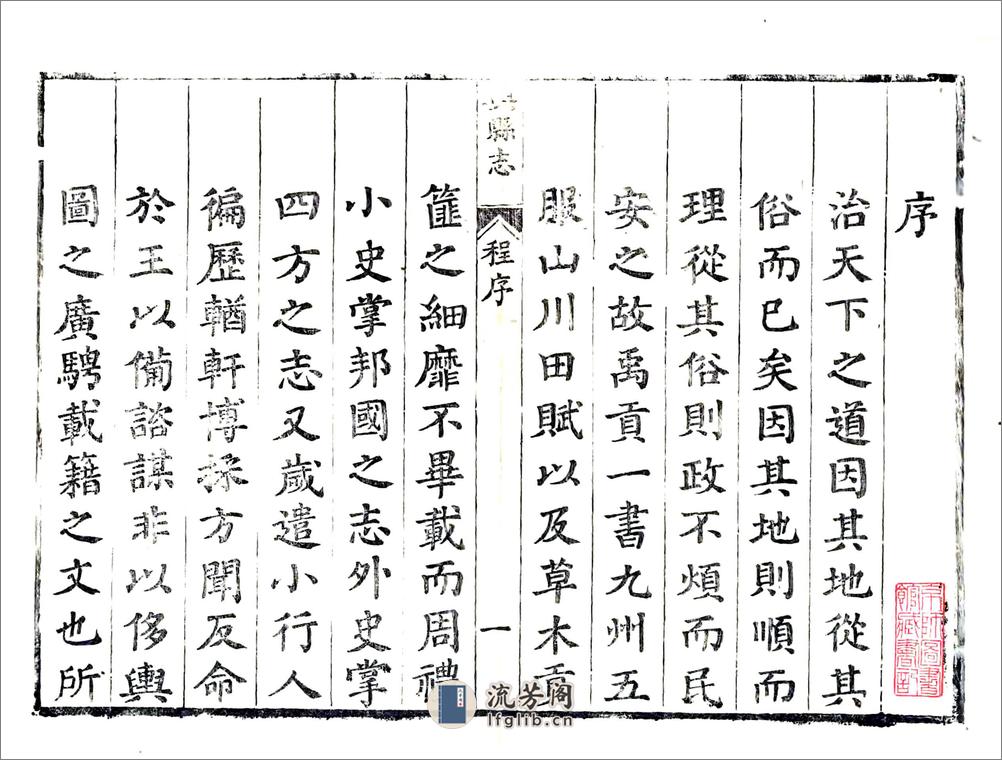 序
治天下之道因其地從其
俗而已矣因其地則順而
理從其俗則政不煩而民
安之故禹貢一書九州五
服山川田賦以及草木貢
縣志
程序
一
篚之細靡不畢載而周禮
小史掌邦國之志外史掌
四方之志又歲遣小行人
徧歷輶軒博採方聞反命
於王以備諮謀非以侈輿
圖之廣騁載籍之文也所
京師圖書
館藏書記
流芳阁
lfglib.cn